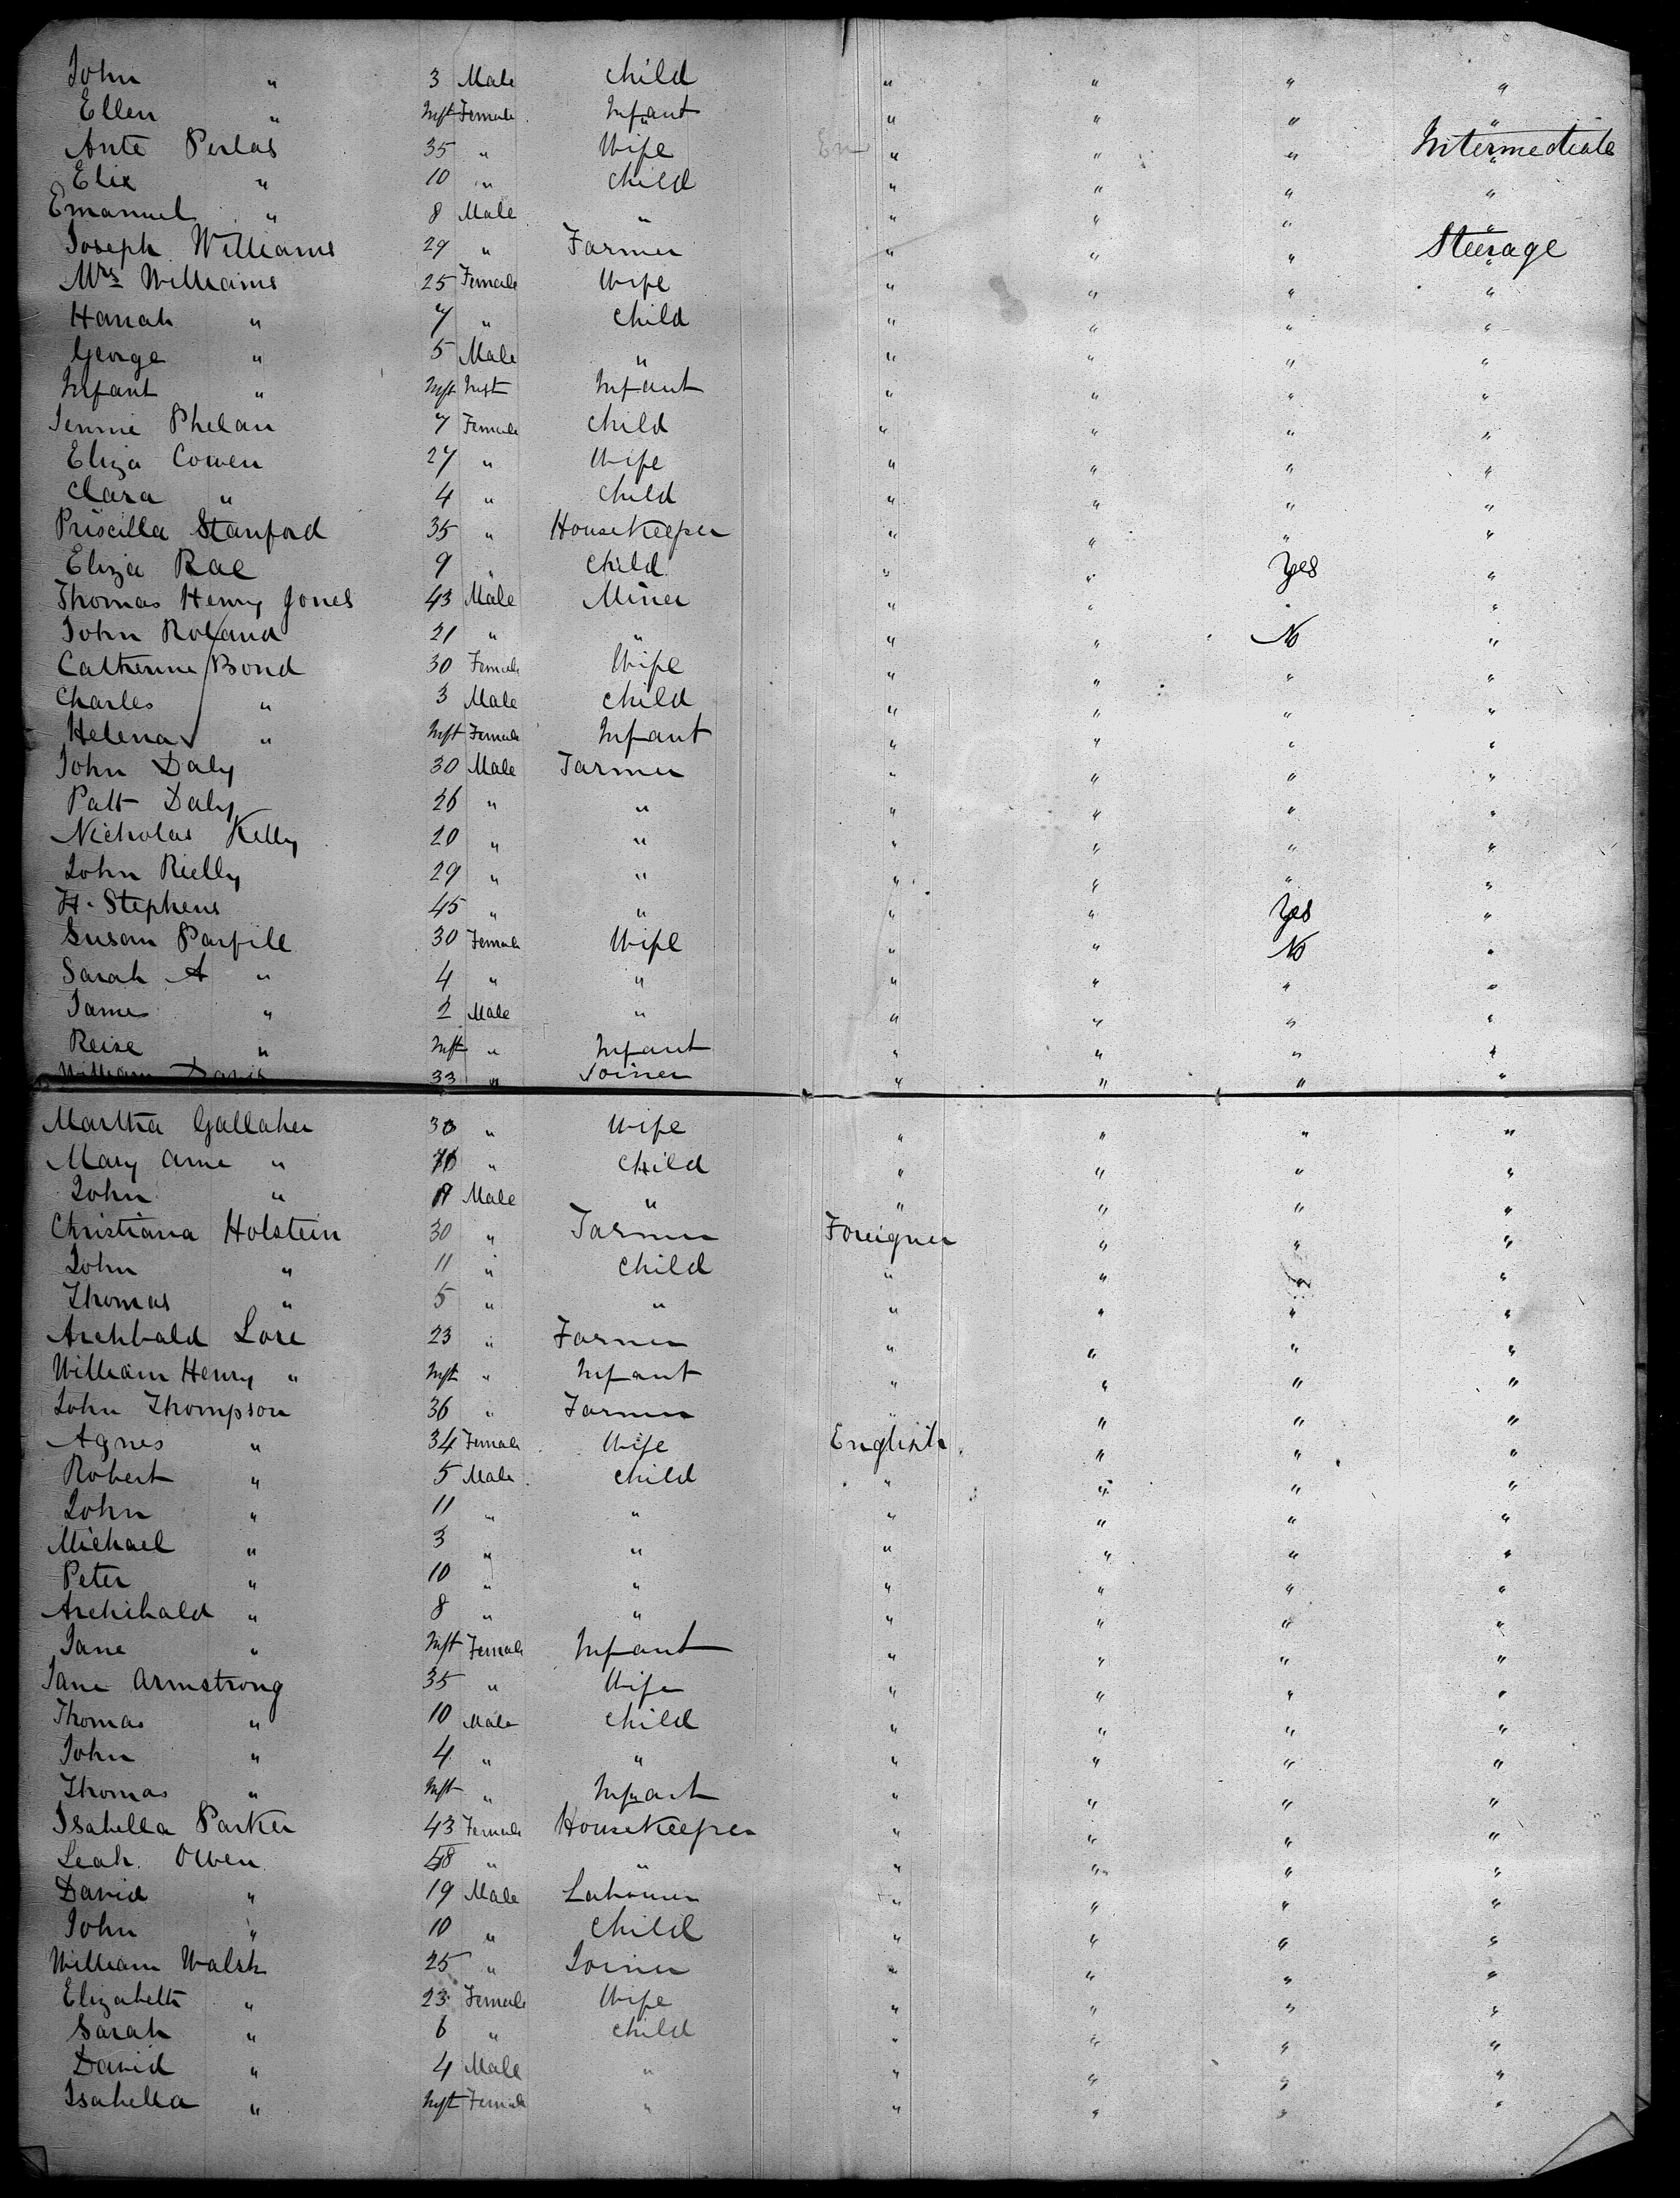 John " 3 Male Child " " " "
Ellen " Inft Female Infant " " " "
Ante Perlas 35 " Wife " " " Intermediate
Elix " 10 " Child " " " "
Emanuel " 8 Male " " " " "
Joseph Williams 29 " Farmer " " " Steerage
Mrs Williams 25 Female Wife " " " "
Hanah " 7 " Child " " " "
George " 5 Male " " " " "
Infant " Inft Inft Infant " " " "
Jennie Phelan 7 Female Child " " " "
Eliza Cowen 27 " Wife " " " "
Clara " 4 " Child " " " "
Priscilla Stanford 35 " HouseKeeper " " " "
Eliza Rae 9 " Child " " Yes "
Thomas Henry Jones 43 Male Miner " " " "
John Roland 21 " " " " No "
Catherine Bond 30 Female Wife " " " "
Charles " 3 Male Child " " " "
Helena " Inft Female Infant " " " "
John Daly 30 Male Farmer " " " "
Patt Daly 26 " " " " " "
Nicholas Kelly 20 " " " " " "
John Rielly 29 " " " " " "
H. Stephens 45 " " " " Yes "
Susan Parfill 30 Female Wife " " No "
Sarah A " 4 " " " " " "
James " 2 Male " " " " "
Reise " Inft " Infant " " " "
William Davis 33 " Joiner " " " "
Martha Gallaher 30 " Wife " " " "
Mary Anne " " Child " " " "
John " Male " " " " "
Christiana Holstein 30 " Farmer Foreigner " " "
John " 11 " Child " " " "
Thomas " 5 " " " " " "
Archbald Lore 23 " Farmer " " " "
William Henry " Inft " Infant " " " "
John Thompson 36 " Farmer " " " "
Agnes " 34 Female Wife English " " "
Robert " 5 Male Child " " " "
John " 11 " " " " " "
Michael " 3 " " " " " "
Peter " 10 " " " " " "
Archibald " 8 " " " " " "
Jane " Inft Female Infant " " " "
Jane Armstrong 35 " Wife " " " "
Thomas " 10 Male Child " " " "
John " 4 " " " " " "
Thomas " Inft " Infant " " " "
Isabella Parker 43 Female HouseKeeper " " " "
Leah Owen 48 " " " " " "
David " 19 Male Labourer " " " "
John " 10 " Child " " " "
William Walsh 25 " Joiner " " " "
Elizabeth " 23 Female Wife " " " "
Sarah " 6 " Child " " " "
David " 4 Male " " " " "
Isabella " Inft Female " " " " "